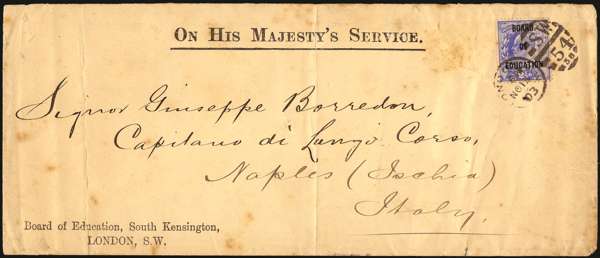 ON HIS MAJESTY'S SERVICE.
BOARD
OF
EDUCATION
54
03
Signor Giuseppe Borredon,
Capitano di Lungo Corso,
Naples (Ischia)
Italy.
Board of Education, South Kensington,
LONDON, S.W.